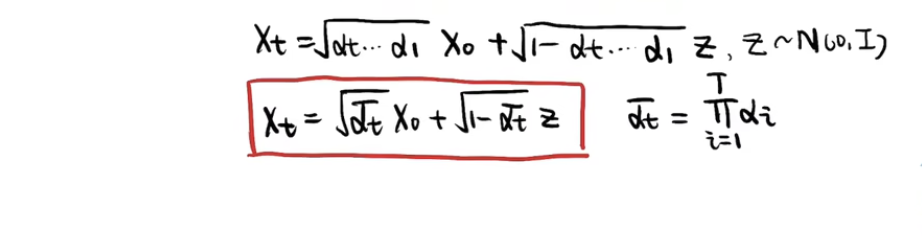 Xt = √(αt⋯α1) X0 + √(1-αt⋯α1) z, z~N(0,I)
Xt = √(ᾱt) X0 + √(1-ᾱt) z    ᾱt = ∏_{i=1}^{T} αi